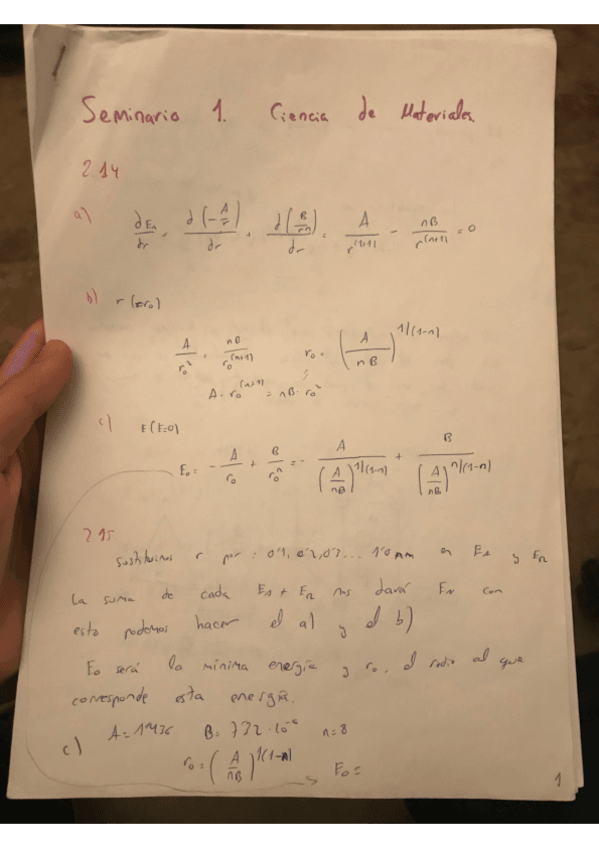 Seminario 1. Ciencia de Materiales.
2.14
a) dEn/dr = d(-A/r)/dr + d(B/r^n)/dr = A/r^(1+1) - nB/r^(n+1) = 0
b) r (=r0)
A/r0^2 = nB/r0^(n+1) r0 = (A/nB)^1/(1-n)
A · r0^(n+1) = nB · r0^2
c) E(E=0)
E0 = - A/r0 + B/r0^n = - A/(A/nB)^1/(1-n) + B/(A/nB)^n/(1-n)
2.15
sustituimos r por: 0'1, 0'2, 0'3... 1'0 nm en EA y ER
la suma de cada EA + ER nos dará EN con
esto podemos hacer el a) y el b)
E0 será la mínima energía y r0, el radio al que
corresponde esta energía.
c) A = 1'436 B = 7'32 · 10^-6 n = 8
r0 = (A/nB)^1/(1-n) E0 =
1